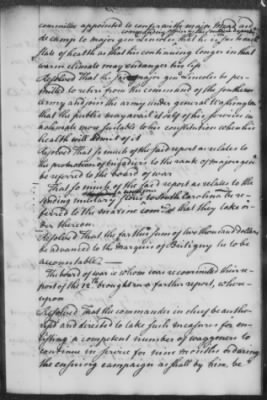 committee appointed to confer with major
de camp to major gen Lincoln, that it is
state of health as that his continuing longer in that
warm climate may endanger his life
Resolved That he major gen Lincoln be per-
mitted to retire from his command of the southern
Army and join the army under general Washington
that the public may avail itself of his services in
more suitable to his constitution when his
health will admit of it.
Resolved That so much of the said report as relates to
the promotion of brigadiers to the rank of major gen
be referred to the board of war
That so much of the said report as relates to the
sending military stores to South Carolina be re-
ferred to the marine that they take or-
der thereon.
Resolved That the farther sum of two thousand dollars
be advanced to the Marquis of Bretigny he to be
accountable
The board of war to whom was recommitted their re-
port of the 12th brought in a farther report, where-
upon
Resolved That the commander in chief be autho-
rised and directed to take such measures for en-
listing a competent number of waggoners to
continue in service for nine months or during
the ensuing campaign as shall by him be